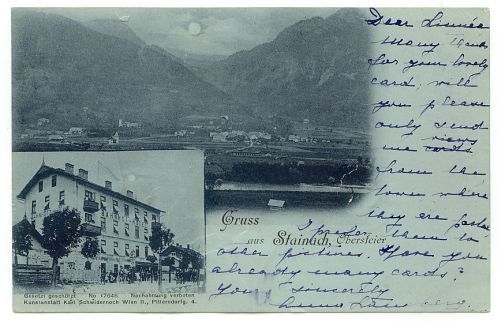 Dear Linnéa
Many thanks
for your lovely
card, will
you please
only send
me views
cards
from the
town where
they are posted
I prefer them to
other pictures. Have you
already many cards?
Yours sincerely
Gruss
aus Stainach, Obersteier
Gesetzl geschützt No 17045 Nachahmung verboten
Kunstanstalt Karl Schwidernoch Wien II., Pillersdorfg. 4.